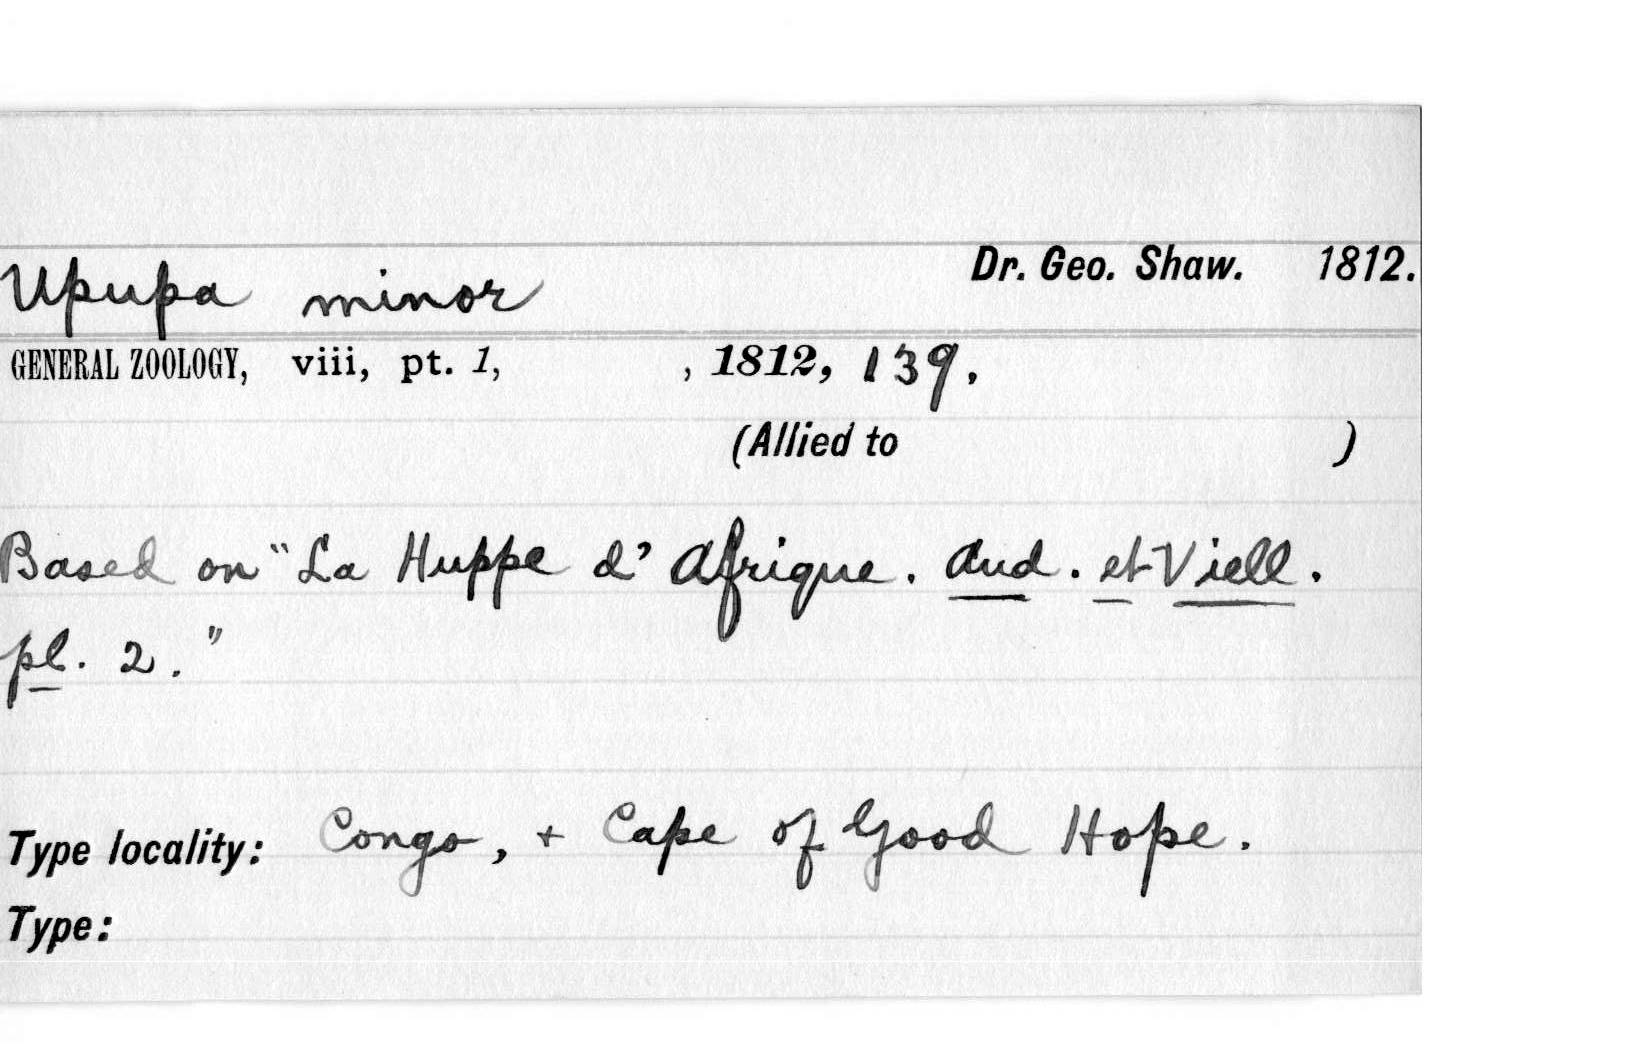 Upupa minor Dr. Geo. Shaw. 1812.
GENERAL ZOOLOGY, viii, pt. 1, , 1812, 139.
(Allied to )
Based on "La Huppe d'Afrique. Aud. et Viell.
pl. 2."
Type locality: Congo, + Cape of Good Hope.
Type: